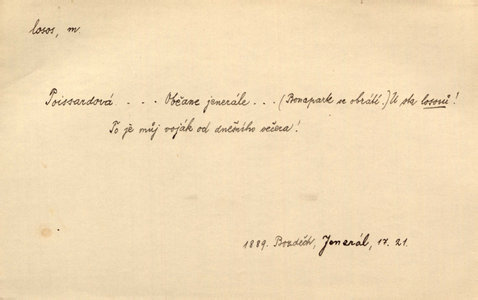 losos, m.
Poissardová . . . Občane jenerále . . . (Bonapart se obrátí.) U sta lososů!
To je můj voják od dnešního večera!
1889. Bozděch, Jenerál, 17. 21.